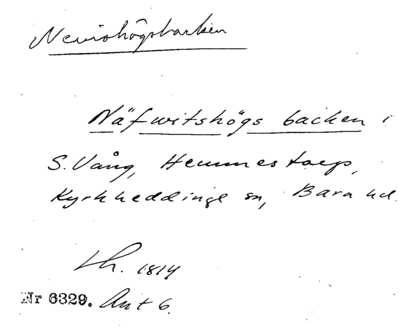 Nevishögsbacken
Näfwitshögs backen i
S. Vång, Hemmestorp,
Kyrkheddinge sn, Bara hd.
Lh. 1814
Nr 6329. Ant 6.